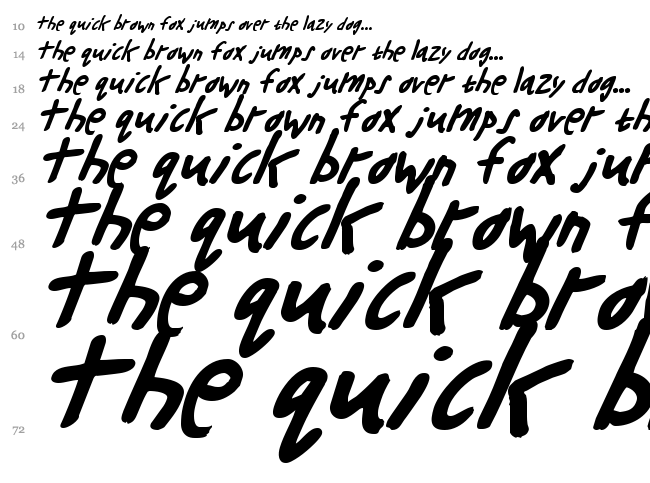 10 the quick brown fox jumps over the lazy dog...
14 the quick brown fox jumps over the lazy dog...
18 the quick brown fox jumps over the lazy dog...
24 the quick brown fox jumps over th
36 the quick brown fox jur
48 the quick brown f
60 the quick bro
72 the quick b